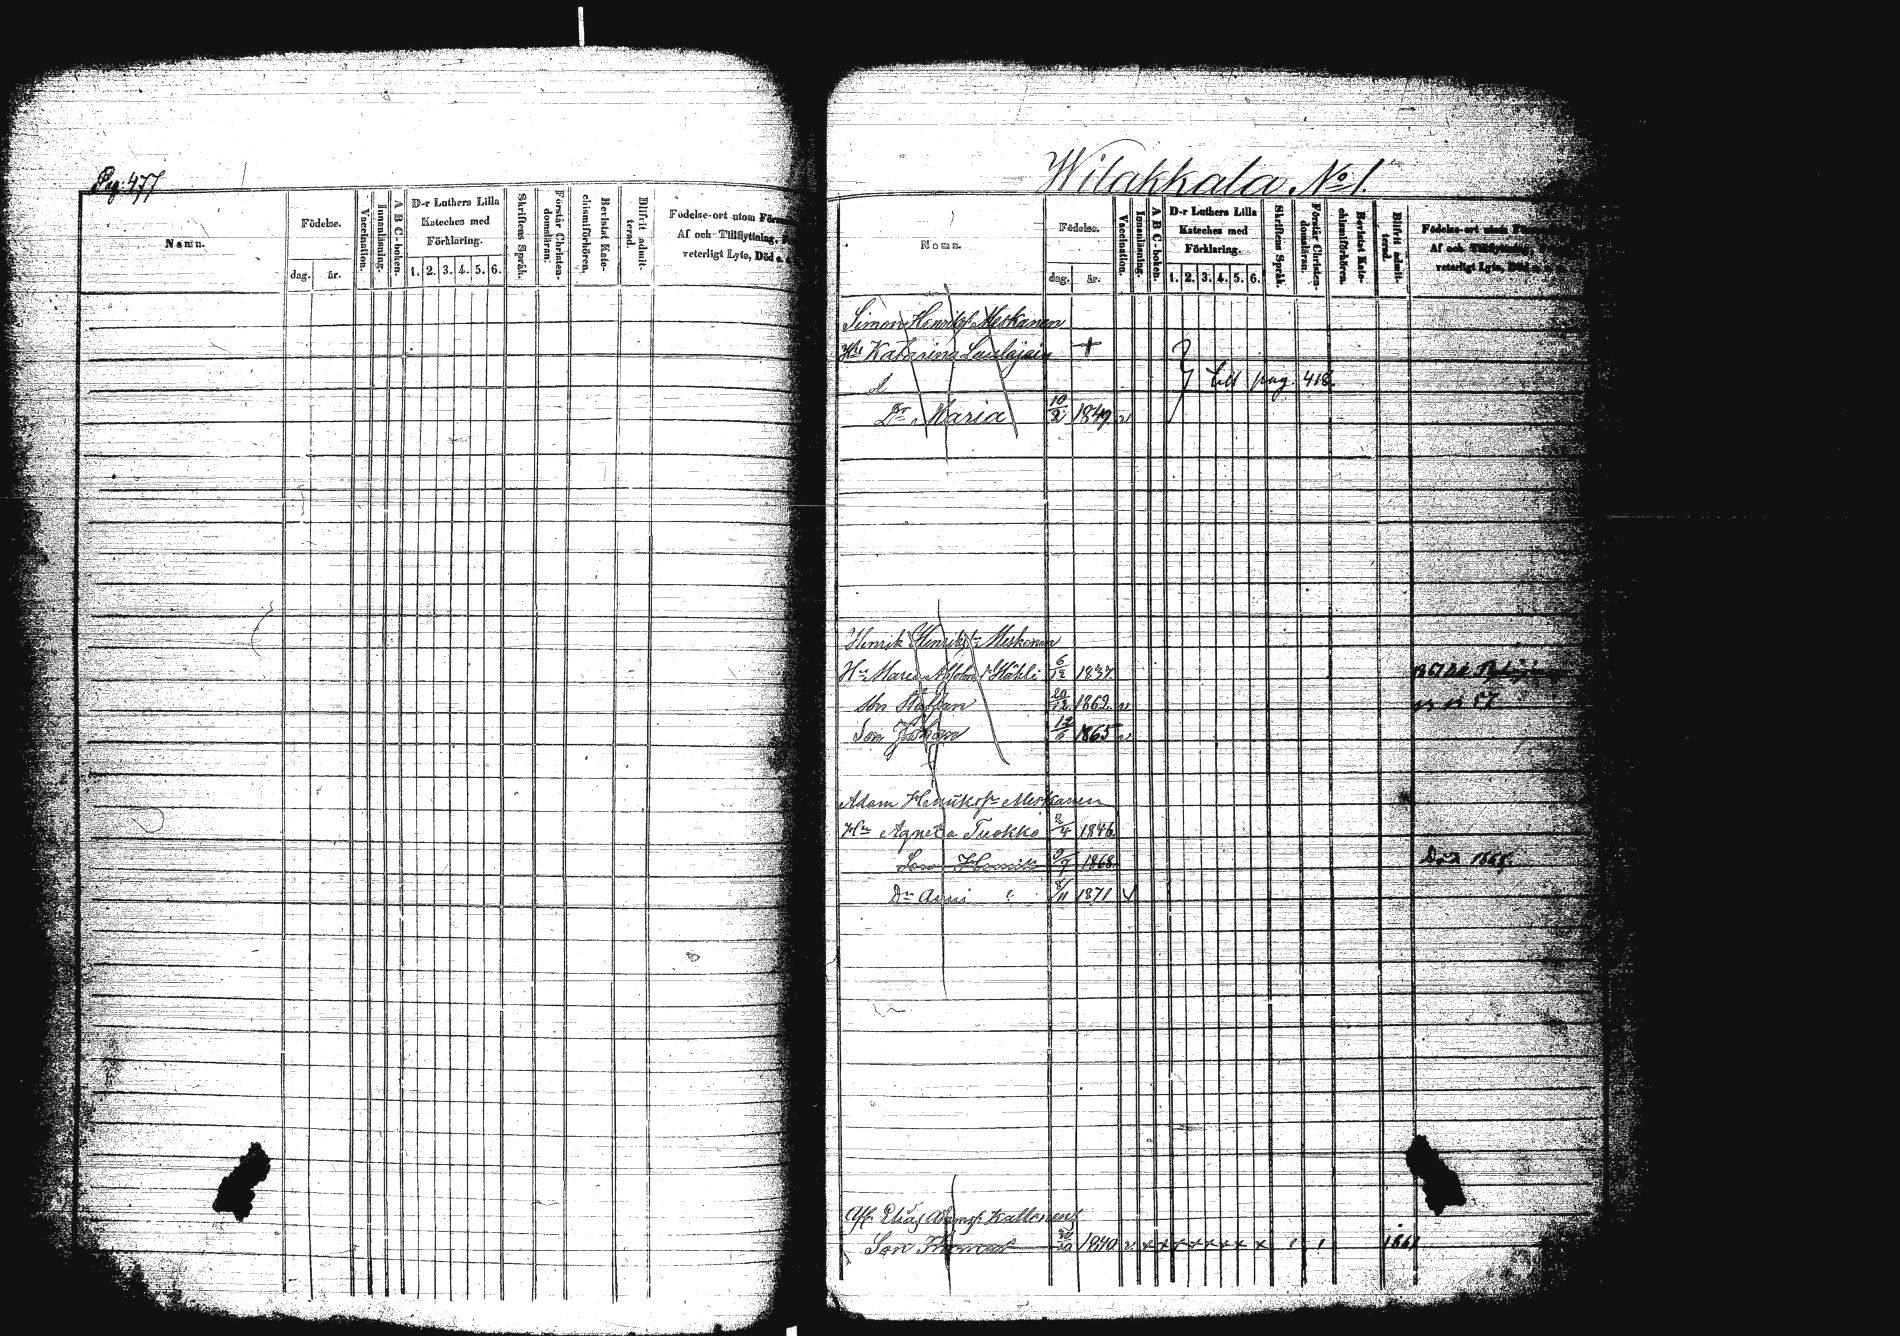 Pag. 477
Namn.
Födelse.
dag.
år.
Vaccination.
Innanläsning.
A B C-boken.
D-r Luthers Lilla
Kateches med
Förklaring.
1. 2. 3. 4. 5. 6.
Skriftens Språk.
Förstår Christen-
domsläran.
Bevistat Kate-
chismiförhören.
Blifvit admit-
terad.
Födelse-ort utom
Af och Tillflyttning,
veterligt Lyte, Död
Wilakkala No 1.
Namn.
Födelse.
dag.
år.
Vaccination.
Innanläsning.
A B C-boken.
D-r Luthers Lilla
Kateches med
Förklaring.
1. 2. 3. 4. 5. 6.
Skriftens Språk.
Förstår Christen-
domsläran.
Bevistat Kate-
chismiförhören.
Blifvit admit-
terad.
Födelse-ort utom
Af och Tillflyttning,
veterligt Lyte, Död
Simon Henriksf Meskanen
Hu Katarina Laulajain +
till pag. 418.
Dr Maria 10/2 1849 v
Henrik Henriksn Meskanen
Hu Maria Häkli 6/12 1837.
Son Staffan 20/12 1862. v
Son Johan 1865 v
Adam Henriksn Meskanen
Hu Agneta Tuokko 2/4 1846.
Son Henrik 9/7 1868 Död 1868.
Dr Anni 8/11 1871 v
Elias Adamsf. Kattonens
Son 1840 v x x x x x x x x 1861